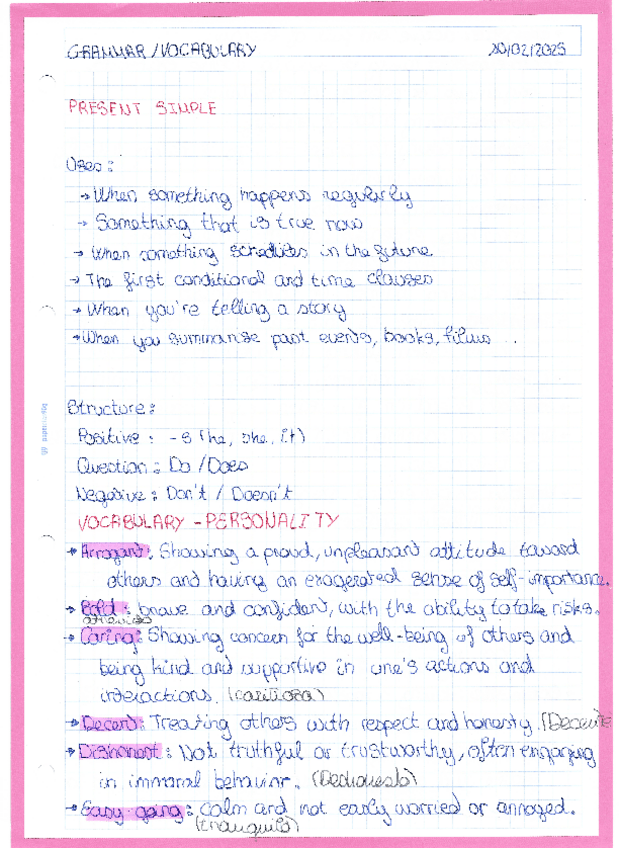 GRAMMAR/VOCABULARY 20/02/2025
PRESENT SIMPLE
Uses:
→ When something happens regularly
→ Something that is true now
→ When something schedules in the future
→ The first conditional and time clauses
→ When you're telling a story
→ When you summarise past events, books, films ...
Structure:
Positive: -s (he, she, it)
Question: Do / Does
Negative: Don't / Doesn't
VOCABULARY - PERSONALITY
→ Arrogant: Showing a proud, unpleasant attitude toward
others and having an exagerated sense of self-importance.
→ Bold: brave and confident, with the ability to take risks.
→ Caring: Showing concern for the well-being of others and
being kind and supportive in one's actions and
interactions. (cariñosa)
→ Decent: Treating others with respect and honesty. (Decente
→ Dishonest: Not truthful or trustworthy, often engaging
in immoral behavior. (Deshonesto)
→ Easy-going: calm and not easily worried or annoyed.
(tranquilo)